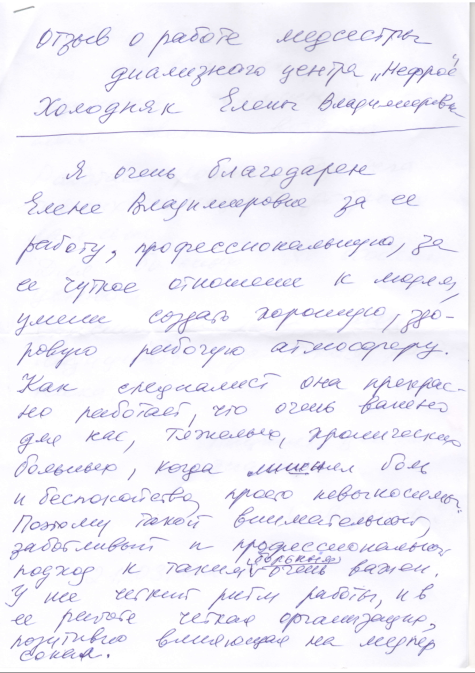 Отзыв о работе медсестры
диализного центра „Нефрос"
Холодняк Елены Владимировны
Я очень благодарен
Елене Владимировне за ее
работу, профессиональную, за
ее чуткое отношение к людям,
умение создать хорошую, здо-
ровую рабочую атмосферу.
Как специалист она прекрас-
но работает, что очень важно
для нас, тяжелых, хронических
больных, когда боль
и беспокойства просто невыносимы.
Поэтому такой внимательный,
заботливый и профессиональный
подход к таким больным очень важен.
У нее четкий ритм работы, и в
ее работе четкая организация,
позитивно влияющая на медпер
сонал.